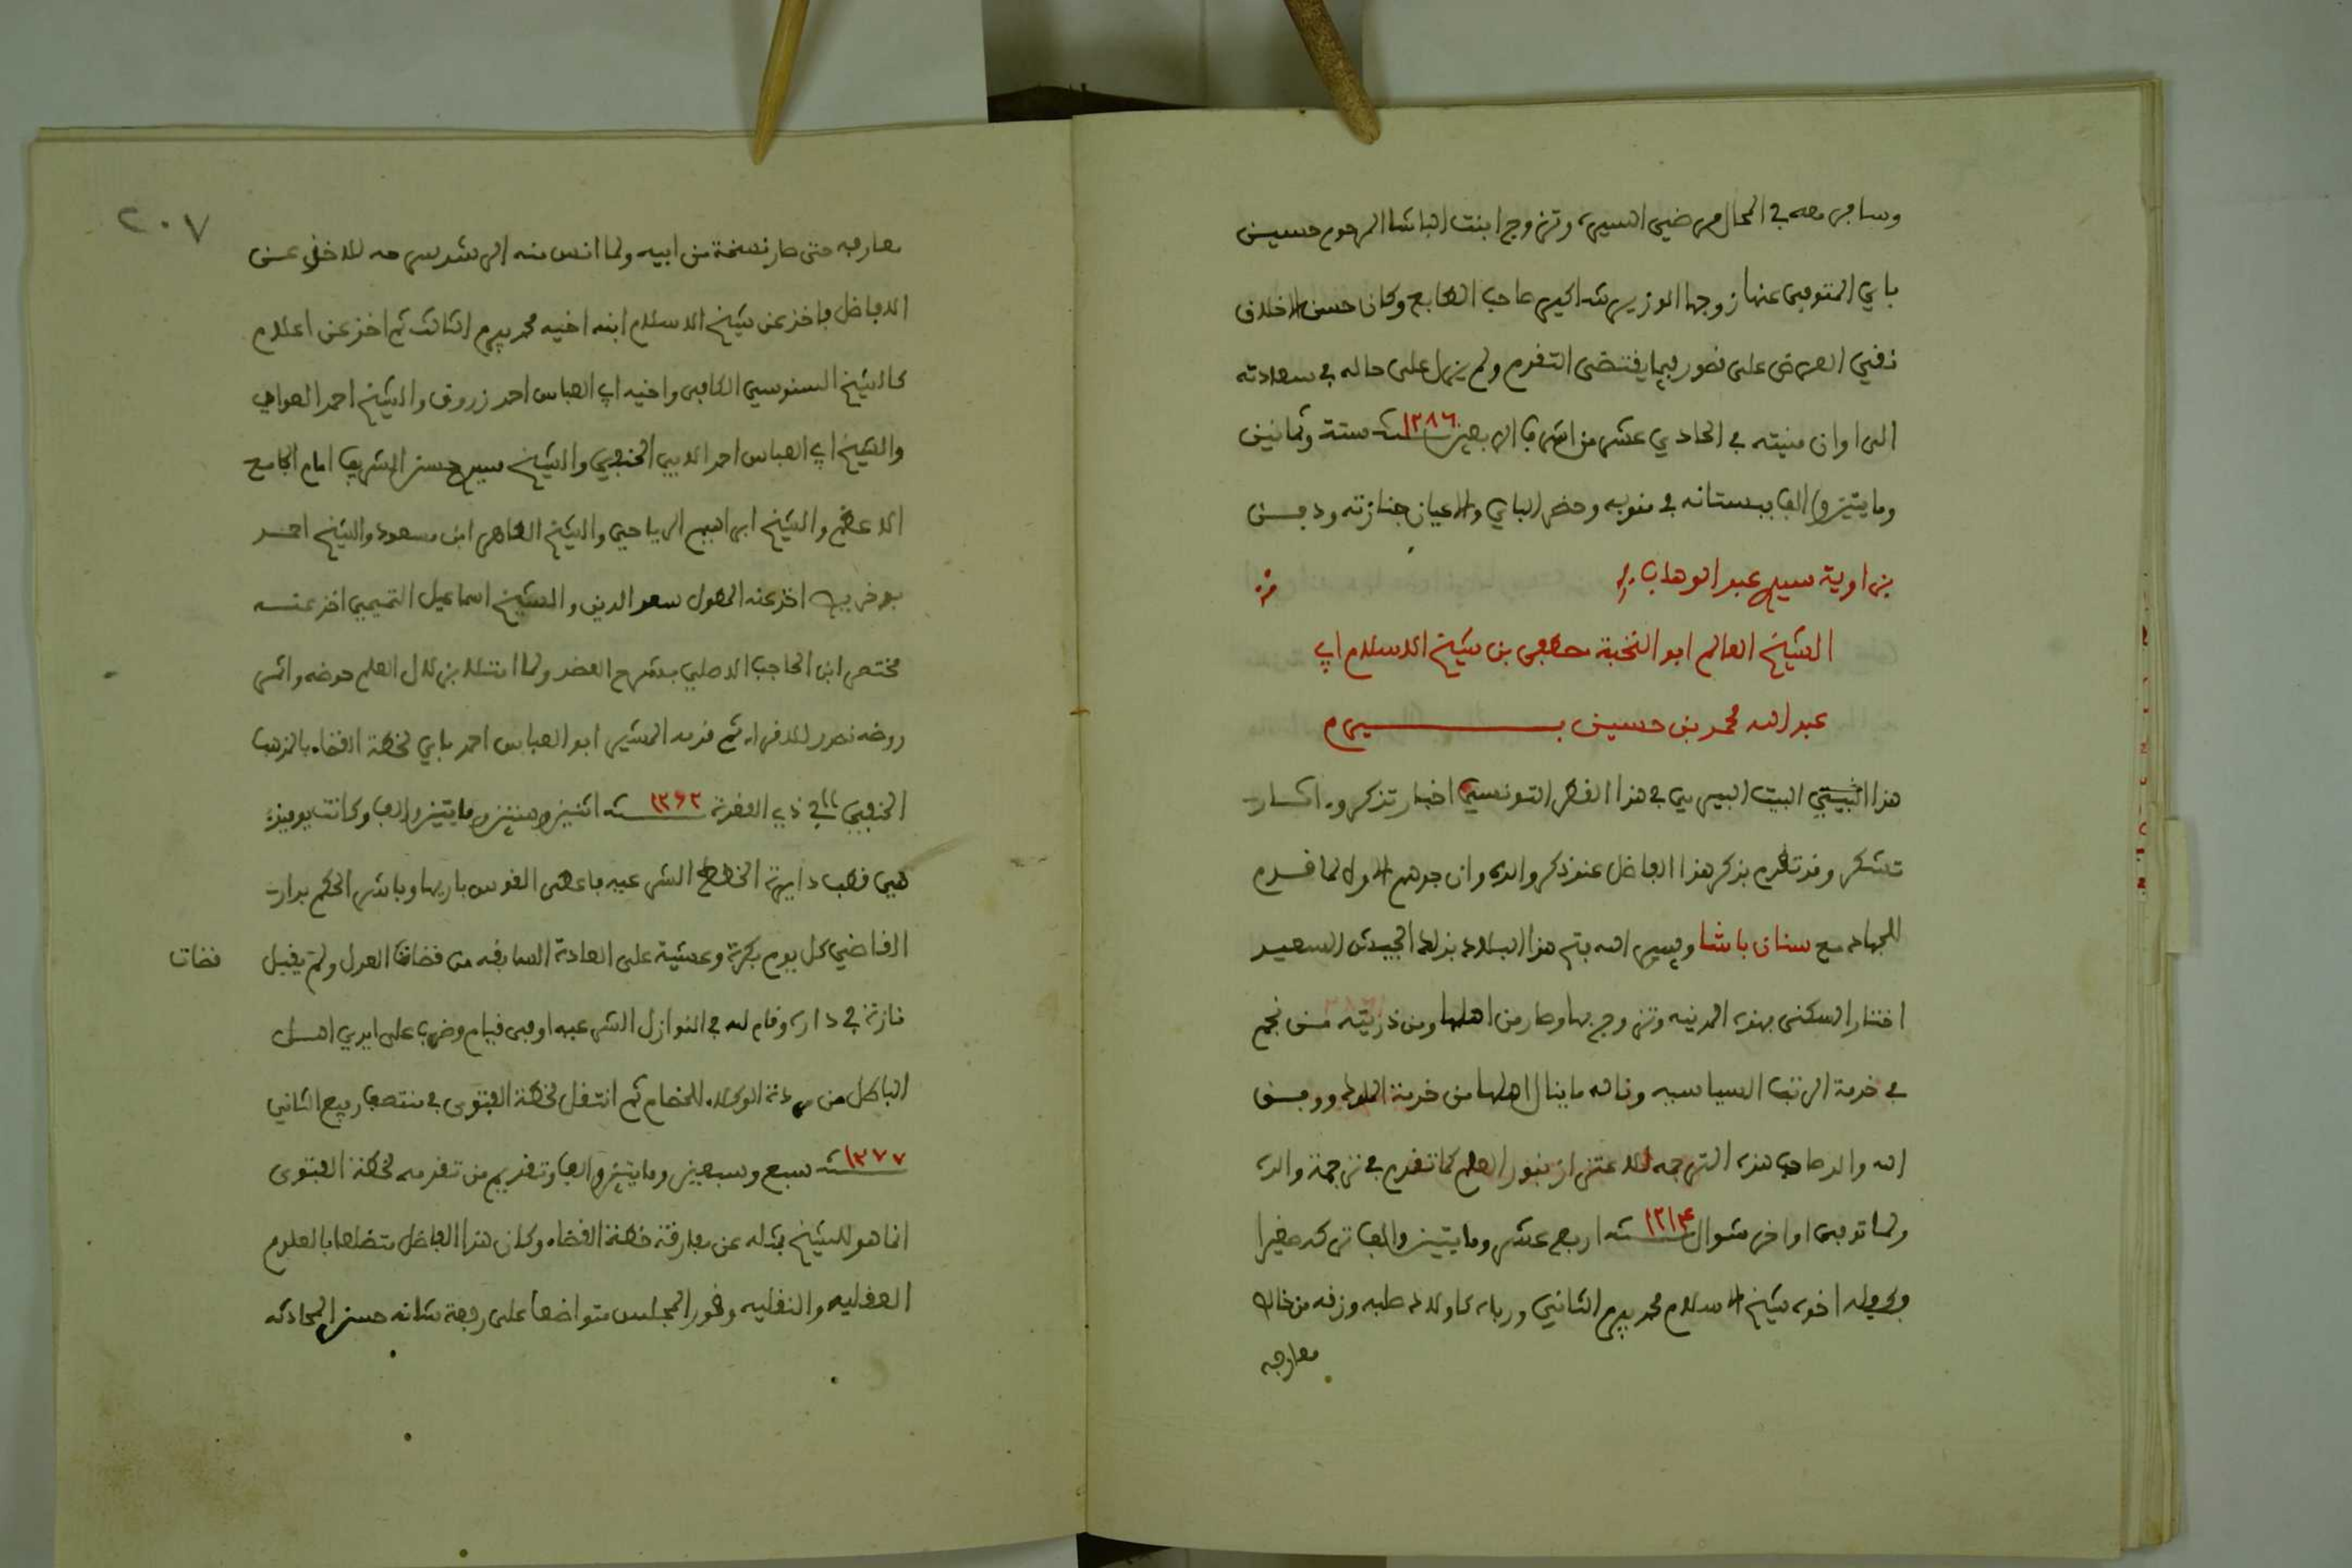 وسافر معه في المحال مرضي السيرة وتزوج ابنت الباشا المرحوم حسين
باي المتوفى عنها زوجها الوزير شاكير صاحب الطابع وكان حسن الاخلاق
نقي العرض على قصور فيما يقتضى التقدم ولم يزل على حاله في سعادته
الى اوان منيته في الحادي عشر من اشرف الربيعين سنة ١٢٨٦ ستة وثمانين
ومايتين والف ببستانه في منوبه وحضر الباي والاعيان جنازته ودفن
بزاوية سيدي عبد الوهاب
الشيخ العالم ابو النخبة مصطفى بن شيخ الاسلام ابي
عبد الله محمد بن حسين بيرم
هذا البيت البيرمي في هذا القطر التونسي اخبار تذكر واثار
تشكر وقد تقدم بذكر هذا الفاضل عند ذكر والده وان جدهم الاول لما قدم
للجهاد مع سنان باشا ويسر الله فتح هذا البلاد بذلك الجيش السعيد
اختار السكنى بهذه المدينه وتزوج بها وصار من اهلها ومن ذريته من نجم
في خدمة الرتب السياسيه وناله ما ينال اهلها من خدمة الملوك ووفق
الله والد صاحب هذه الترجمه للاعتزاز بنور العلم كما تقدم في ترجمة والده
ولما توفى اواخر شوال سنة ١٢١٤ اربع عشر ومايتين والف تركه صغيرا
وكفله اخوه شيخ الاسلام محمد بيرم الثاني ورباه كاولاد صلبه وزقه من خالص
معارفه
٢٠٧
معارفه حتى صار نسخة من ابيه ولما انس منه الرشد سرحه للاخذ عن
الافاضل فاخذ عن شيخ الاسلام ابنه اخيه محمد بيرم الثالث ثم اخذ عن اعلام
كالشيخ السنوسي الكافى واخيه ابي العباس احمد زروق والشيخ احمد العوادي
والشيخ ابي العباس احمد الابي الحنفي والشيخ سيدي حسن الشريف امام الجامع
الاعظم والشيخ ابراهيم الرياحي والشيخ الطاهر ابن مسعود والشيخ احمد
بوخريص اخذ عنه المطول سعد الدين والشيخ اسماعيل التميمي اخذ عنه
مختصر ابن الحاجب الاصلي بشرح العضد ولما امتلا بزلال العلم حوضه واثمر
روضه تصدر للاقراء ثم قدمه المشير ابو العباس احمد باي لخطة القضاء بالمذهب
الحنفي في ذي القعدة سنة ١٢٦٢ اثنين وستين ومايتين والف وكانت يوميذ
هي قطب دايرة الخطط الشرعيه فاعطى القوس باريها وباشر الحكم بدار
القاضي كل يوم بكرة وعشية على العادة السابقه من قضات العدل ولم يقبل
قضات
نازلة في داره وقام لله في النوازل الشرعيه اوفى قيام وضرب على ايدي اهل
الباطل من مردة الوكلاء للخصام ثم انتقل لخطة الفتوى في منتصف ربيع الثاني
سنة ١٢٧٧ سبع وسبعين ومايتين والف وتقديم من تقدمه لخطة الفتوى
انما هو للشيخ بداله عن مفارقة خطة القضاء وكان هذا الفاضل متضلعا بالعلوم
العقليه والنقليه وقور المجلس متواضعا على رفعة شانه حسن المحادثه